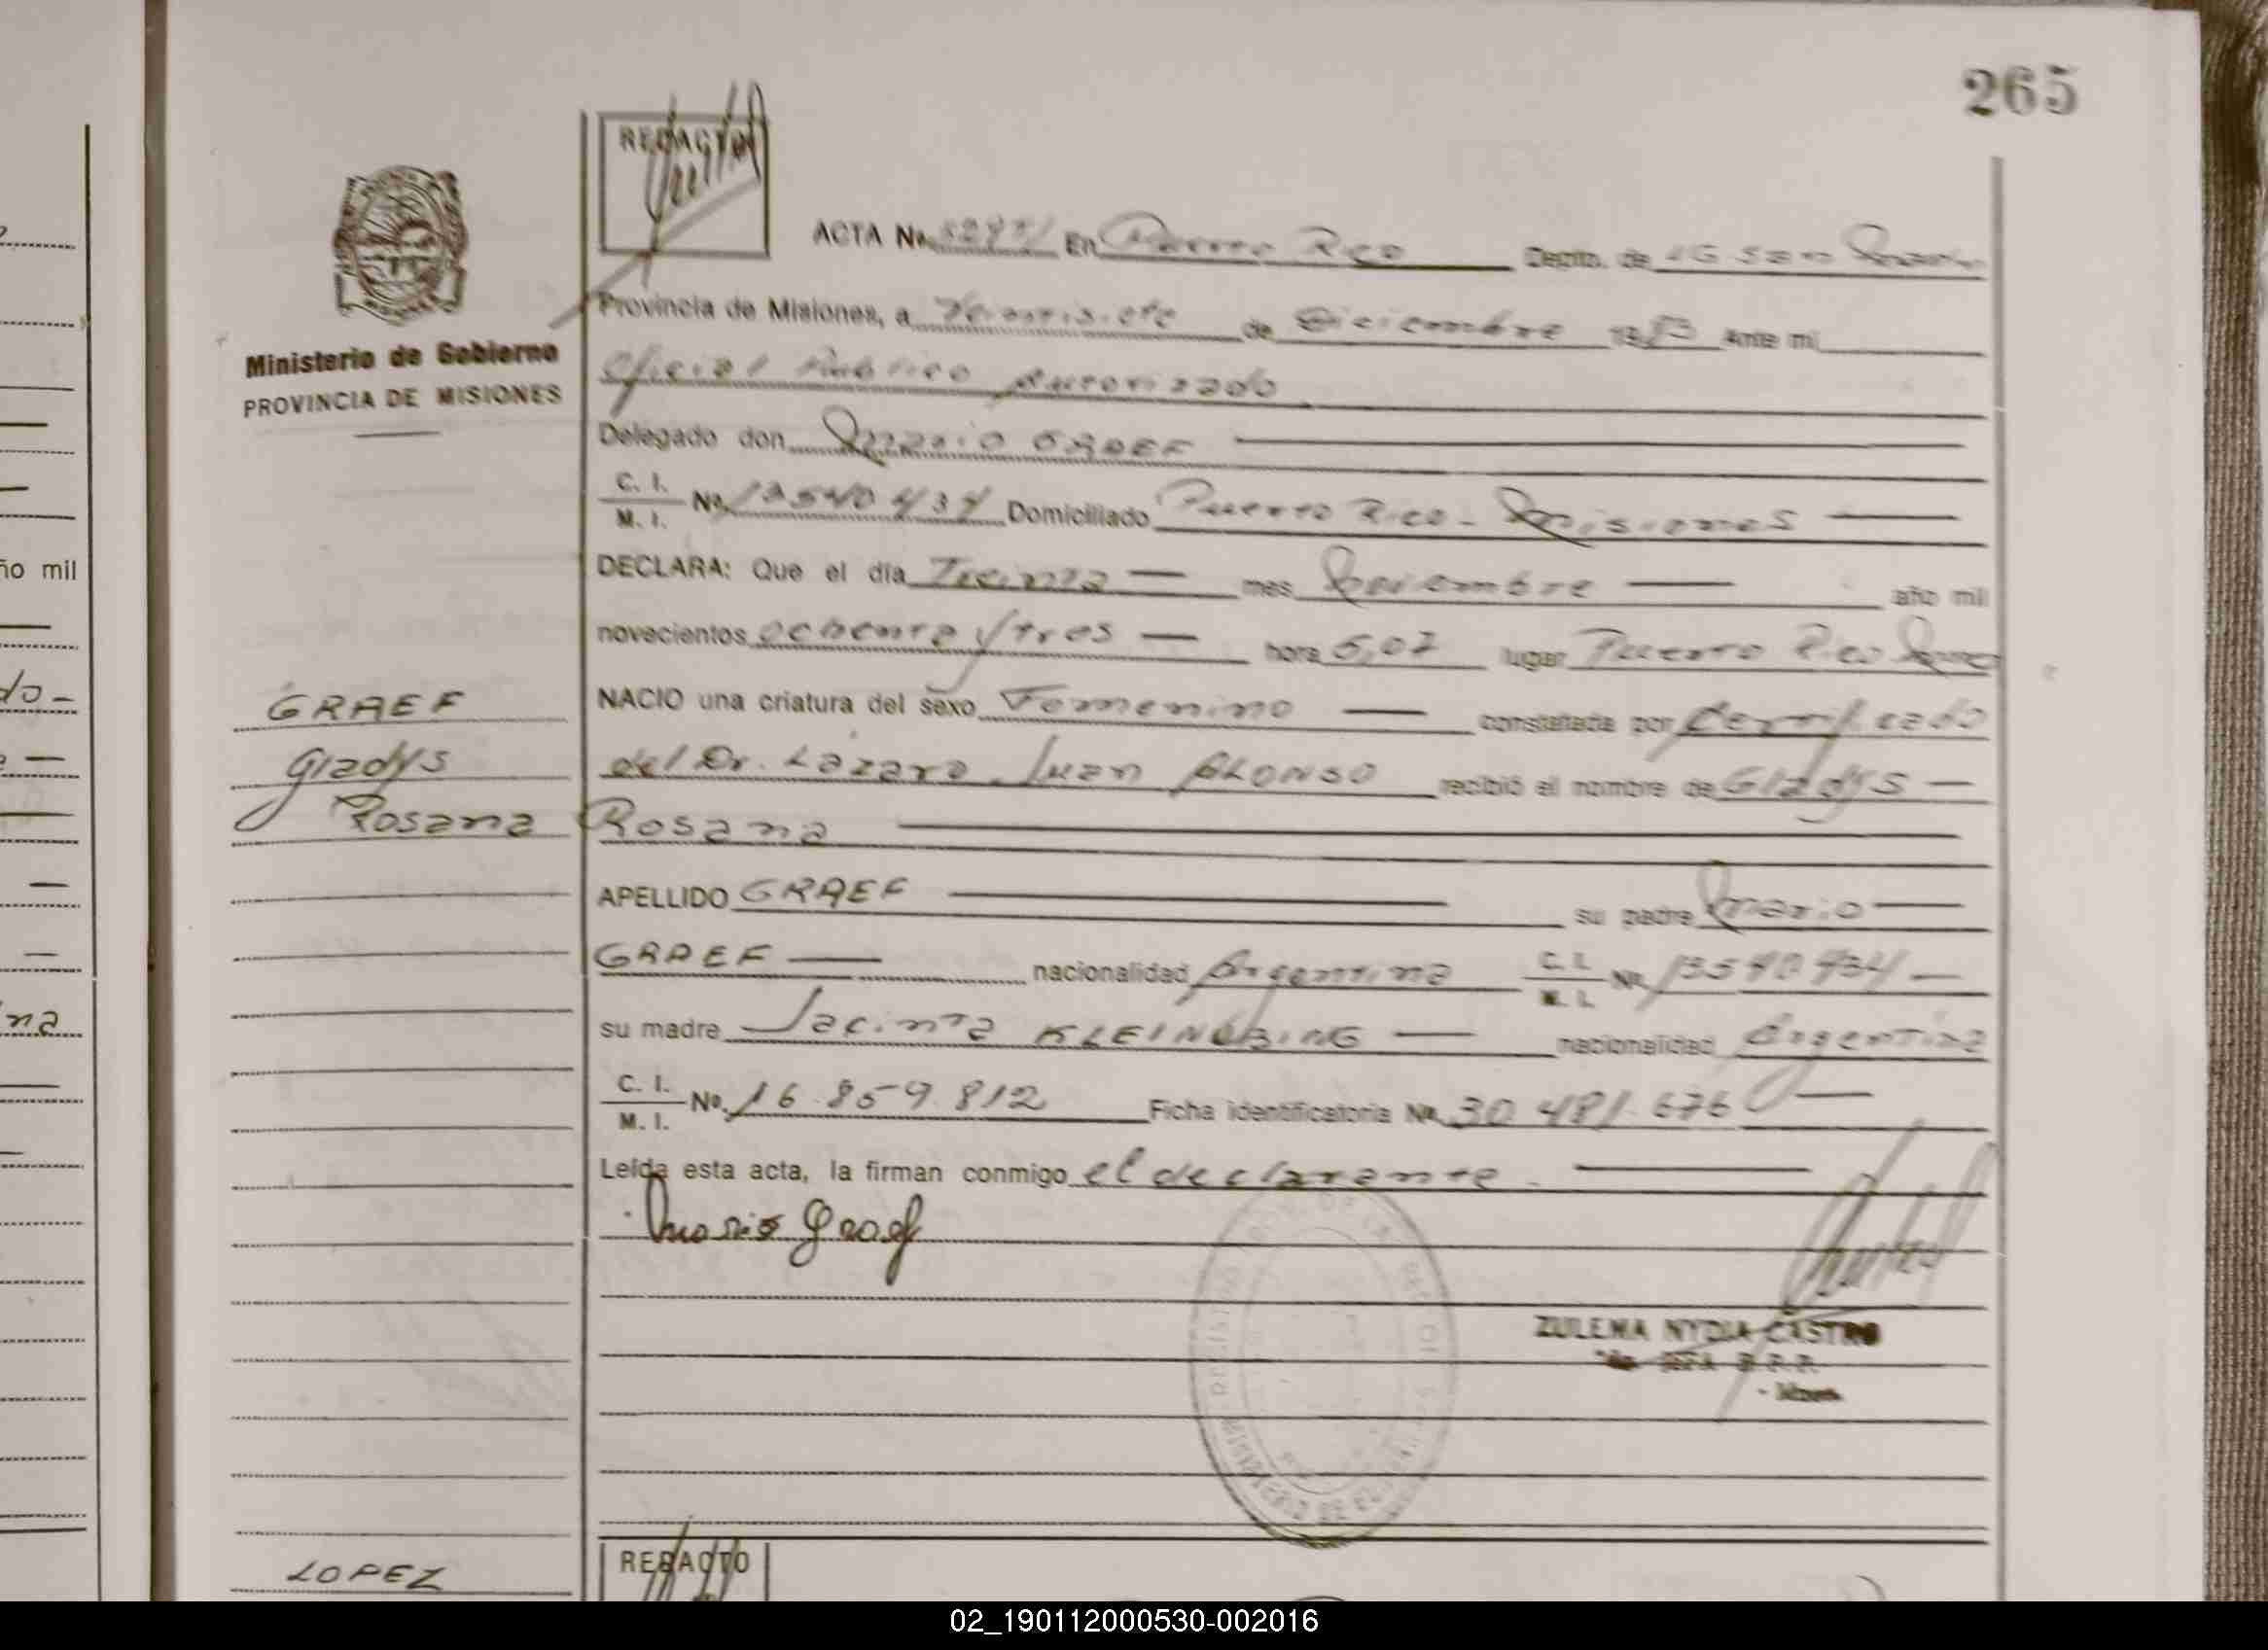 265
REDACTO
ACTA No. En Puerto Rico Depto. de
Provincia de Misiones, a Veintisiete de Diciembre 1983 Ante mi
Oficial Publico Autorizado
Ministerio de Gobierno
PROVINCIA DE MISIONES
Delegado don Mario GRAEF
C. I.
M. I.
No. 13540434 Domiciliado Puerto Rico - Misiones
DECLARA: Que el día Treinta mes año mil
novecientos ochenta y tres hora 5,07 lugar Puerto Rico
NACIO una criatura del sexo Femenino constatada por Certificado
del Dr. Lazaro Juan ALONSO recibió el nombre de Gladys
Rosana
GRAEF
Gladys
Rosana
APELLIDO GRAEF su padre Mario
GRAEF nacionalidad Argentina C. I. M. I. No. 13540434
su madre Jacinta KLEINÜBING nacionalidad Argentina
C. I.
M. I.
No. 16.859.812 Ficha identificatoria No. 30.481.676
Leída esta acta, la firman conmigo el declarante.
Mario Graef
ZULEMA NYDIA CASTRO
REDACTO
LOPEZ
ño mil
do-
na
02_190112000530-002016